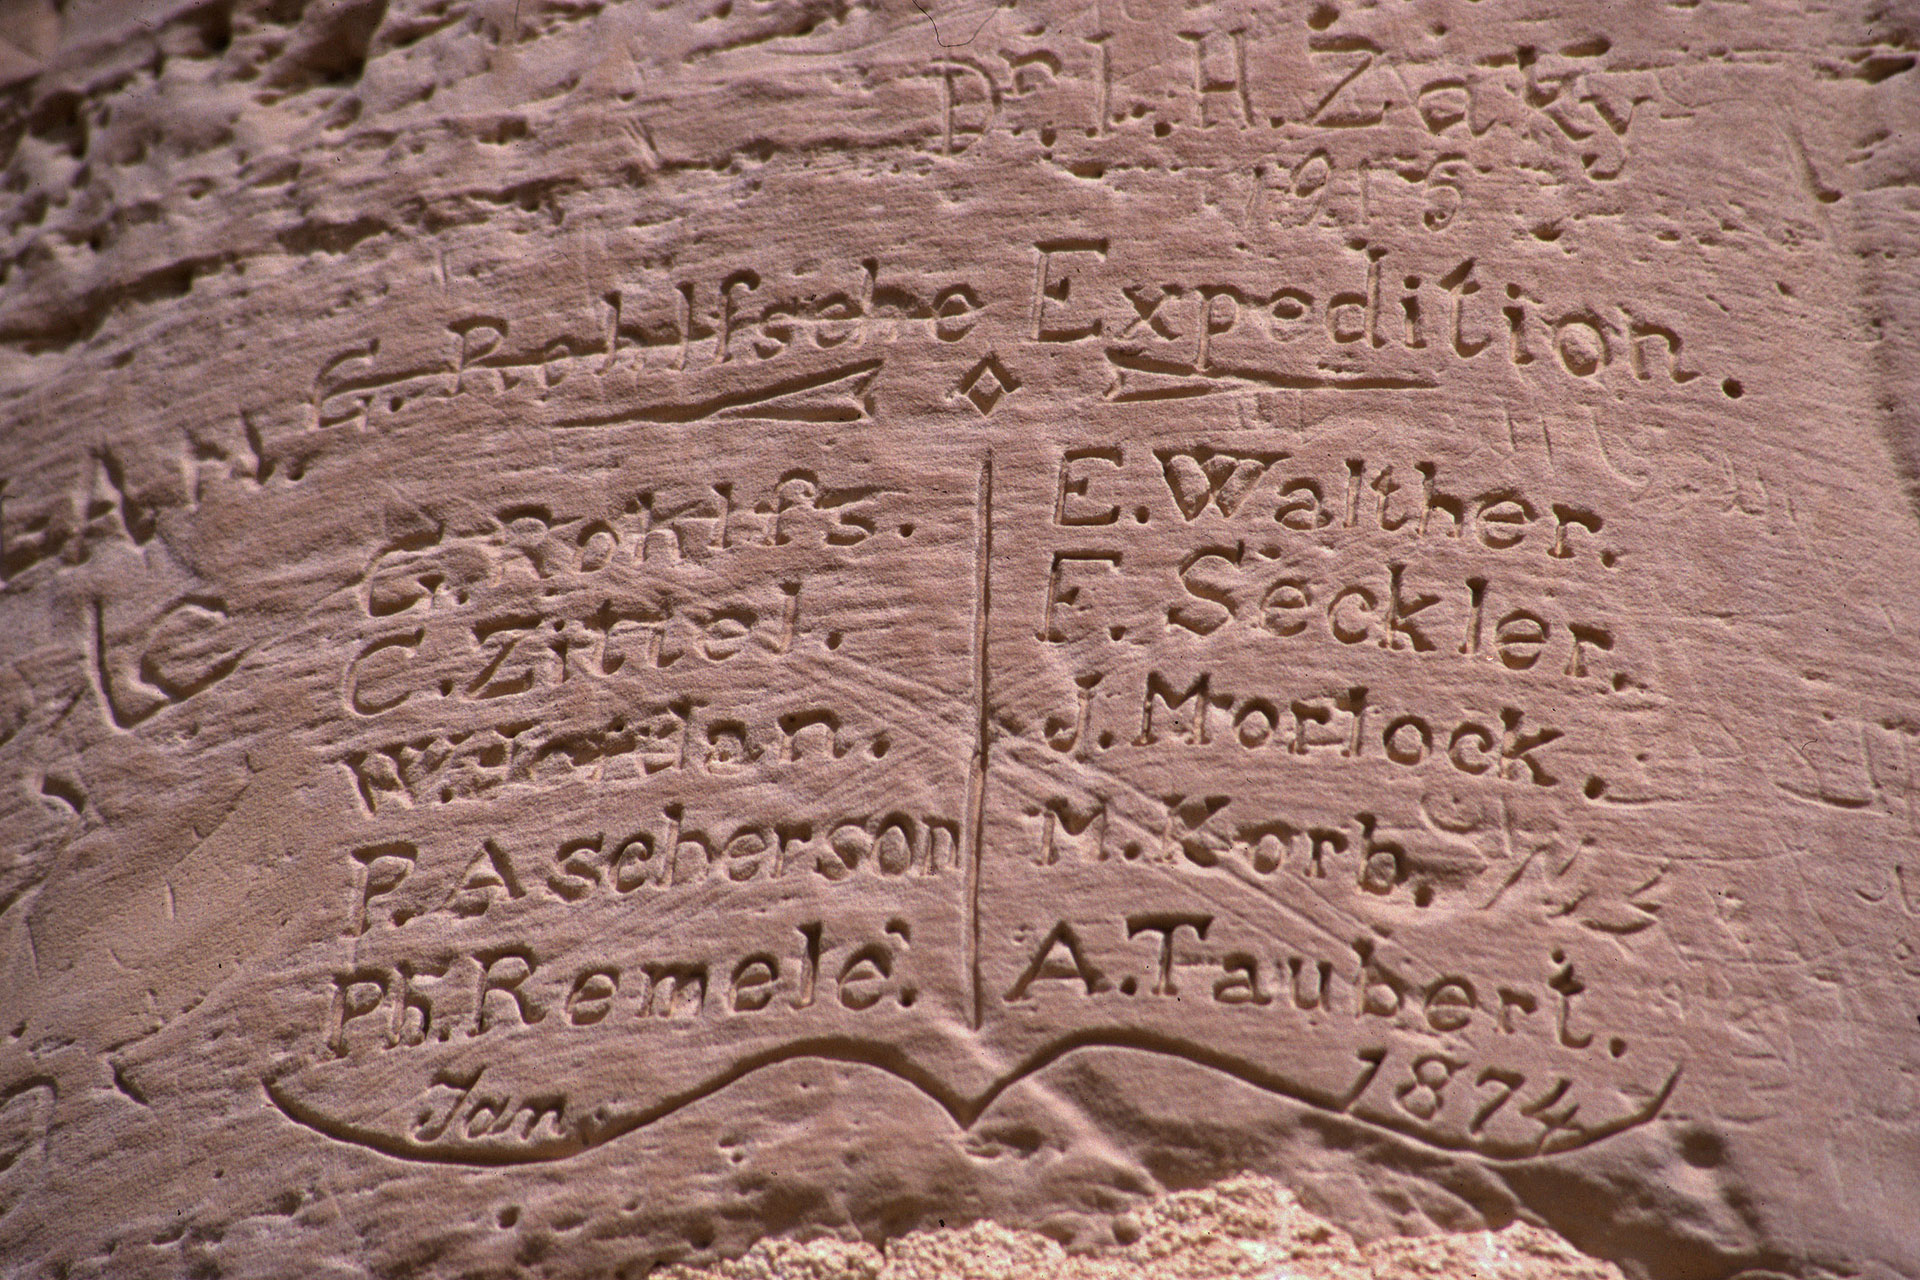 Dr. I. H. Zaky
1915
G. Rohlfsche Expedition.
G. Rohlfs.
C. Zittel.
W. Jordan.
P. Ascherson
Ph. Remelé.
E. Walther.
F. Seckler.
J. Morlock.
M. Korb.
A. Taubert.
Jan. 1874